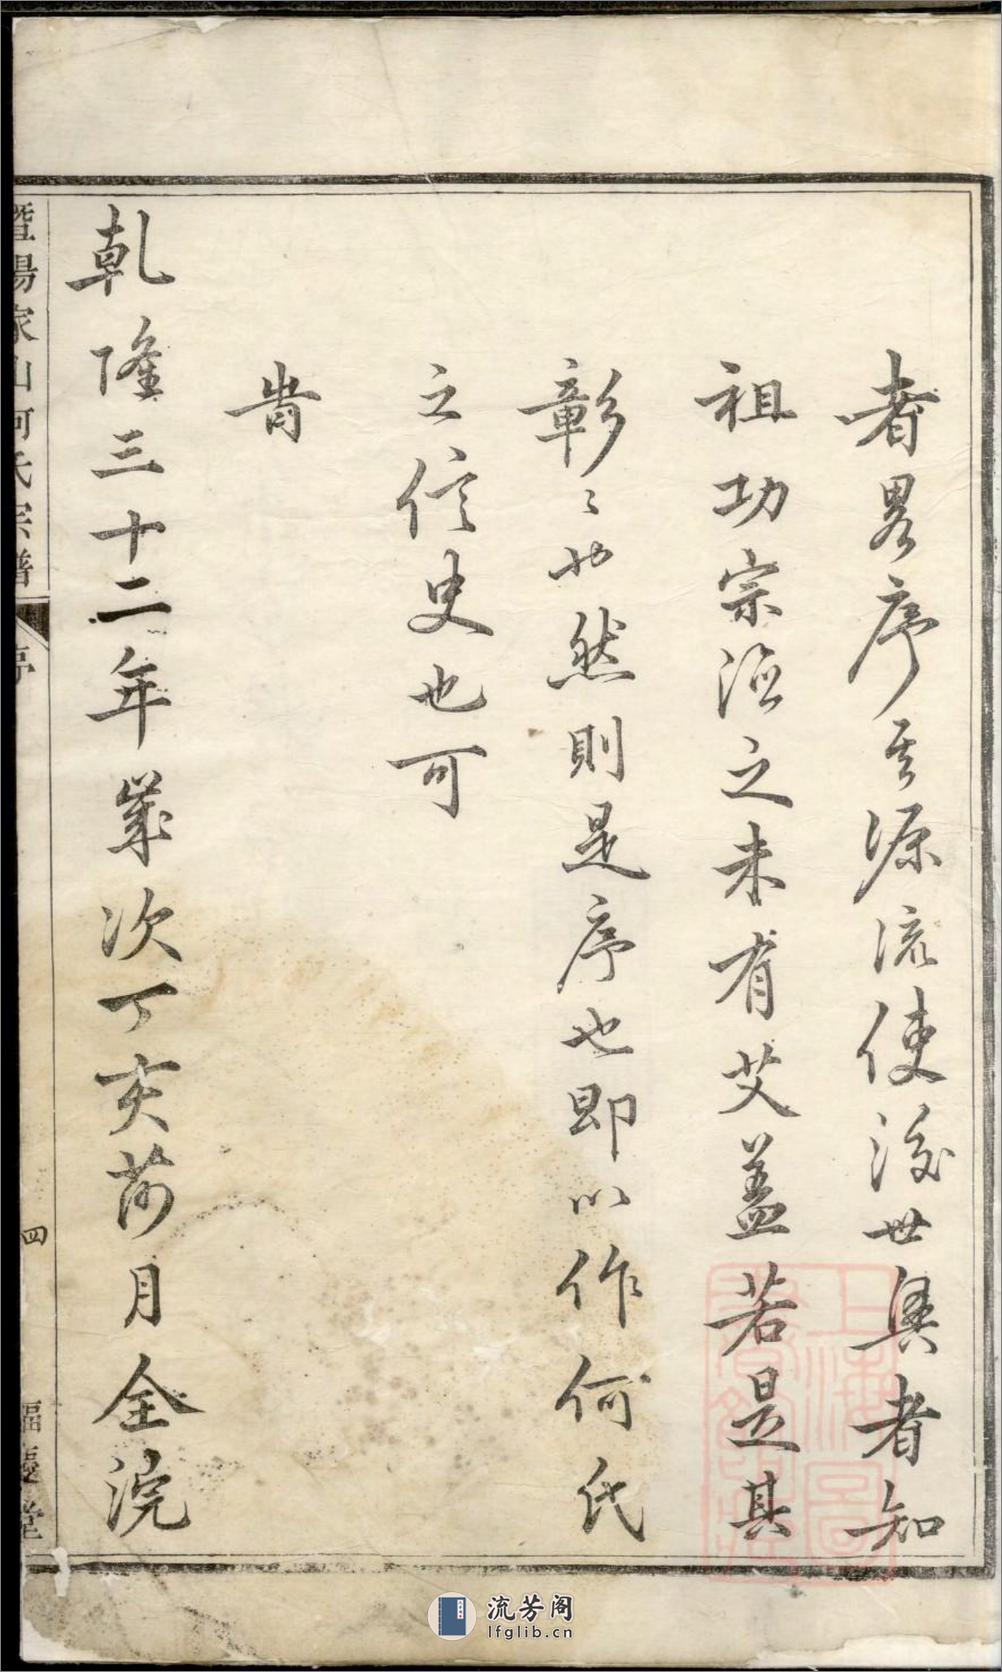 者畧序其源流使後世與者知
祖功宗德之未有艾盖若是其
彰〻也然則是序也即以作何氏
之信史也可
旹
乾隆三十二年嵗次丁亥荷月全浣
暨陽家山何氏宗譜
序
四
福慶堂
流芳阁
lfglib.cn